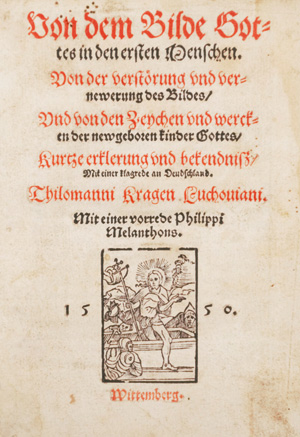 Von dem Bilde Got-
tes in den ersten Menschen.
Von der verstörung vnd ver-
newerung des Bildes/
Vnd von den Zeychen vnd werck-
en der newgeboren kinder Gottes/
Kurtze erklerung vnd bekendniß/
Mit einer klagrede an Deudschland.
Thilomanni Kragen Luchouiani.
Mit einer vorrede Philippi
Melanthons.
15 50.
Wittemberg.